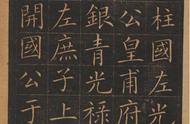 柱國左光
公皇甫府
銀青光祿
左庶子上
開國公于